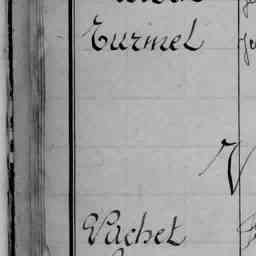 Turmel
V
Vachet